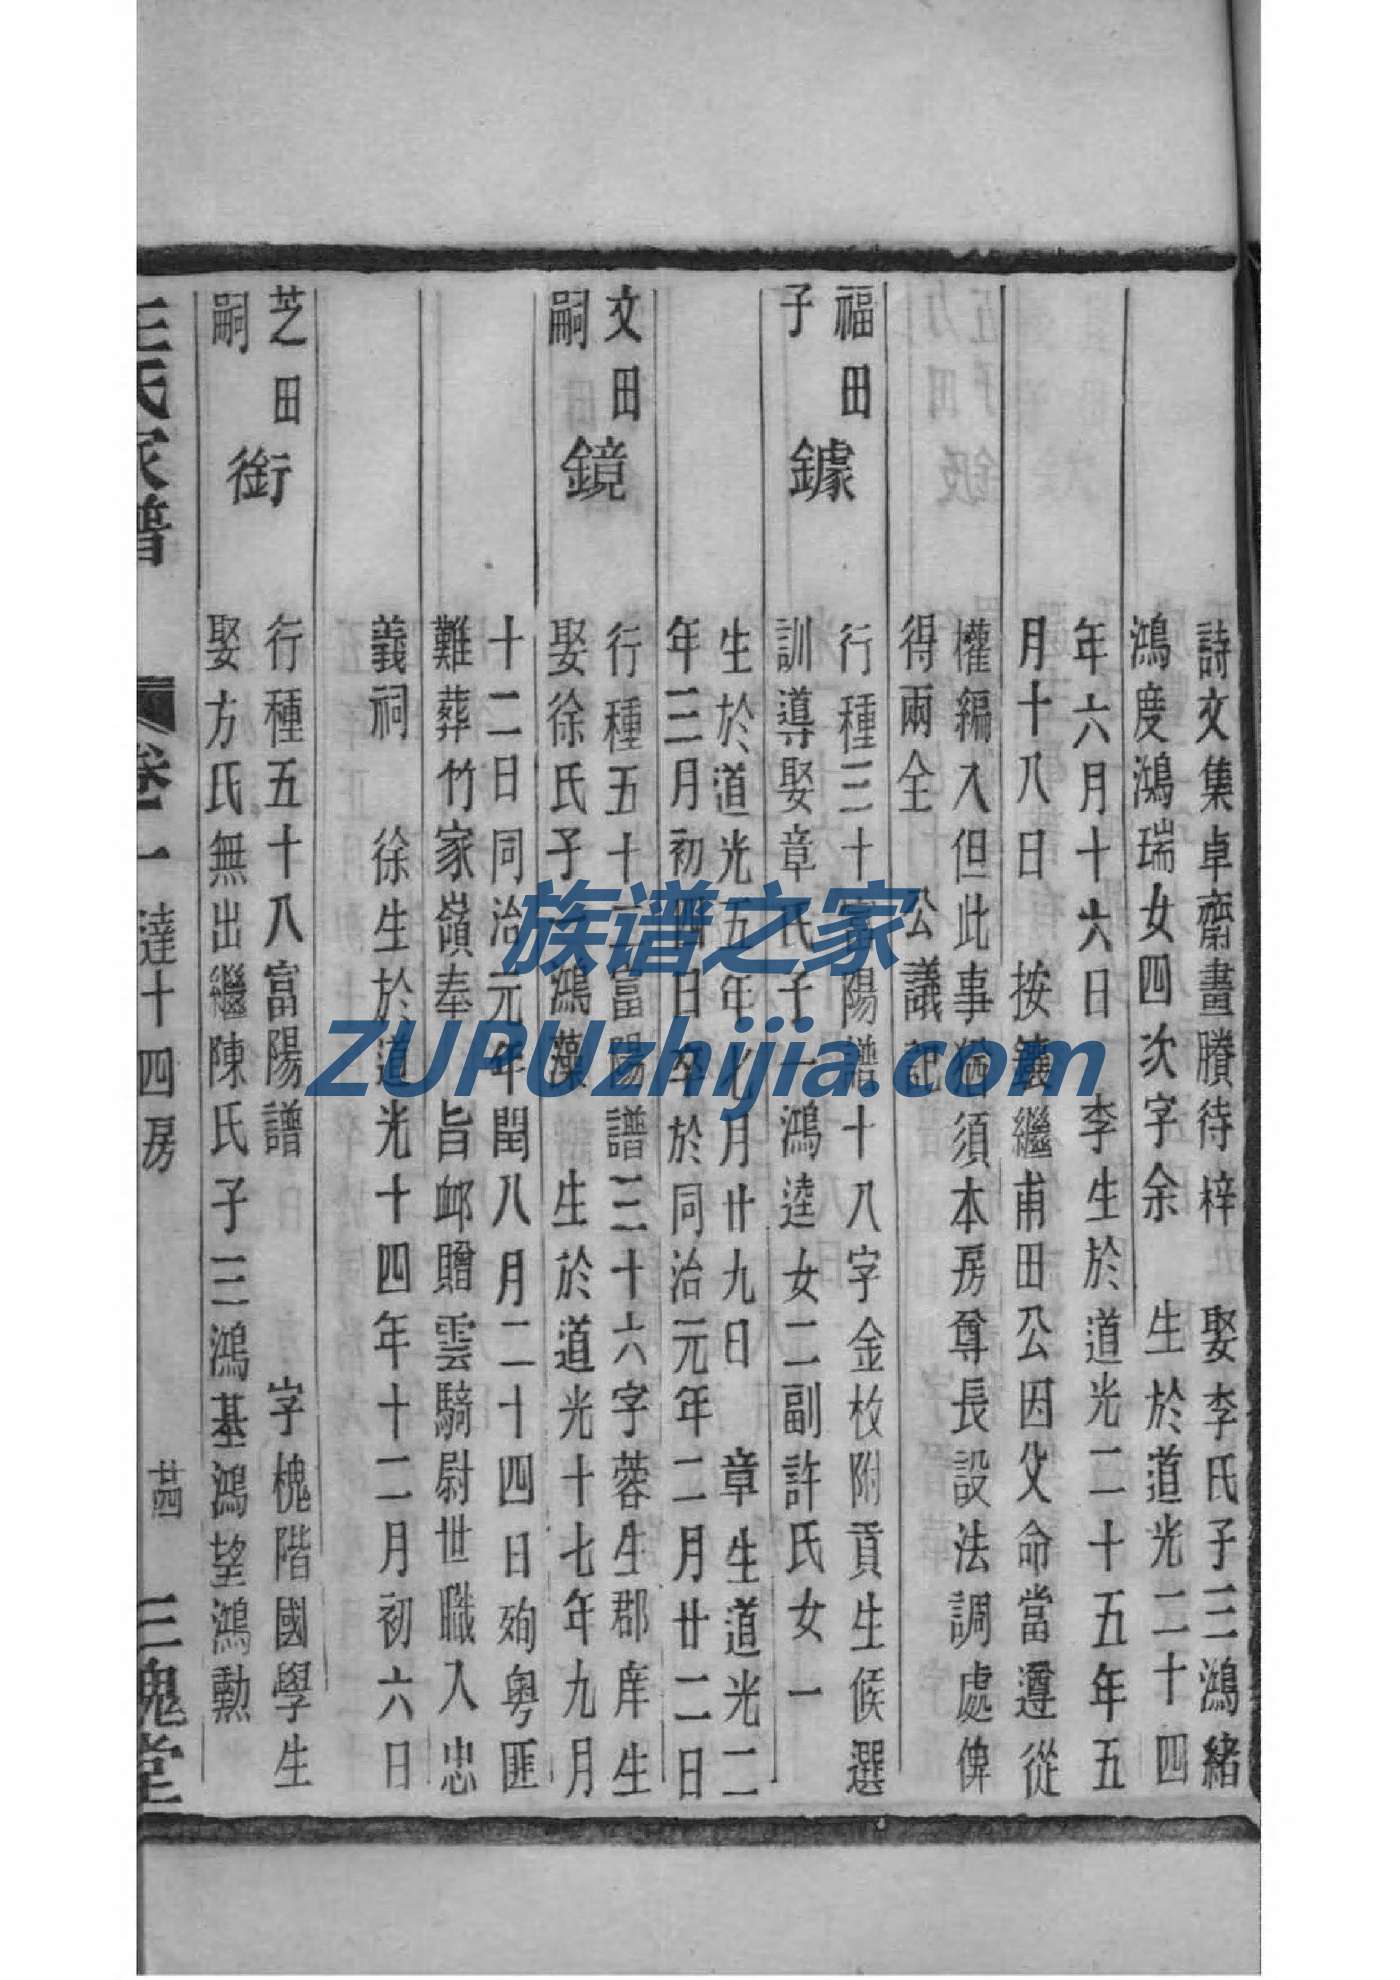 詩文集卓齋畫賸待梓 娶李氏子三鴻緒
鴻度鴻瑞女四次字余 生於道光二十四
年六月十六日 李生於道光二十五年五
月十八日 按 繼甫田公因父命當遵從
權編入但此事 須本房尊長設法調處俾
得兩全 公議
福田
子 鐻
行種三十富陽譜十八字金枚附貢生候選
訓導娶章氏子一鴻逵女二副許氏女一
生於道光五年七月廿九日 章生道光二
年三月初四日卒於同治元年二月廿二日
文田
嗣 鏡
行種五十二富陽譜三十六字蓉生郡庠生
娶徐氏子一鴻藻 生於道光十七年九月
十二日同治元年閏八月二十四日殉粵匪
難葬竹家嶺奉 旨卹贈雲騎尉世職入忠
義祠 徐生於道光十四年十二月初六日
芝田
嗣 銜
行種五十八富陽譜 字槐階國學生
娶方氏無出繼陳氏子三鴻基鴻望鴻勳
王氏家譜 卷一 達十四房 廿四 三槐堂
族谱之家
ZUPUzhijia.com